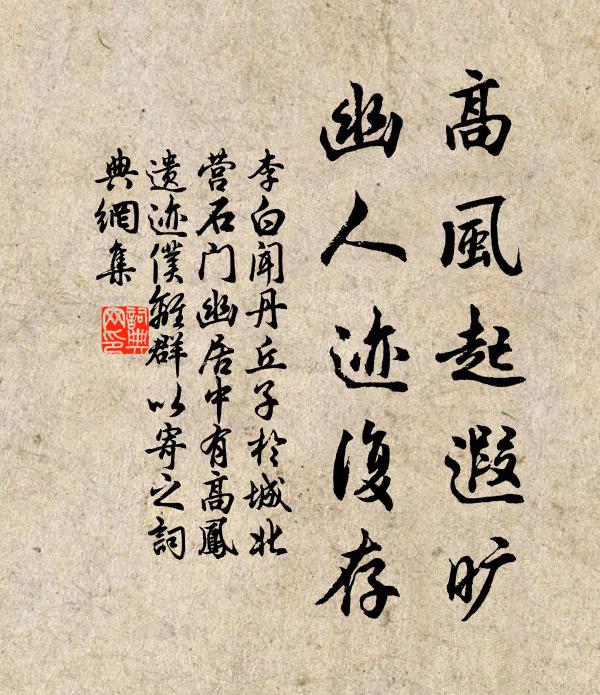 高風起遐旷
幽人迹復存
李白闻丹丘子於城北
营石门幽居中有高鳳
遗迹僕離群以寄之詞
典網集
詞典
网印